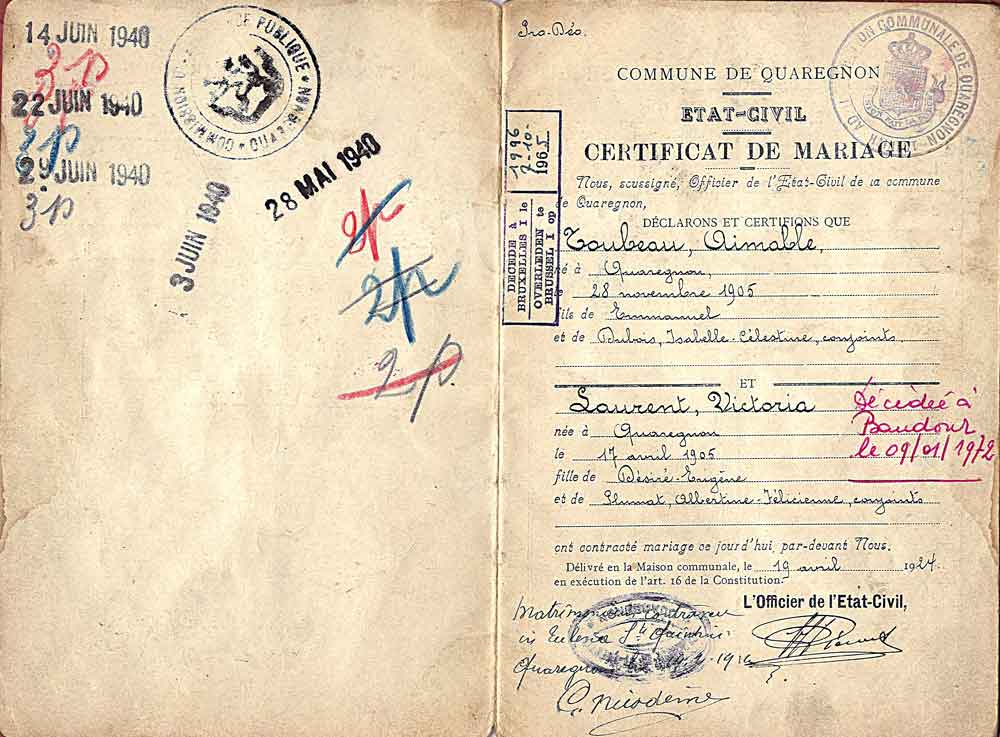 14 JUIN 1940
3 p
22 JUIN 1940
2 p
29 JUIN 1940
3 p
PUBLIQUE * COMMISSION
3 JUIN 1940
28 MAI 1940
2 p
2 p
2 p.
COMMUNE DE QUAREGNON
ETAT-CIVIL
CERTIFICAT DE MARIAGE
COMMUNALE DE QUAREGNON
1996
7-10-
1965
DECEDE à
BRUXELLES I le
OVERLEDEN te
BRUSSEL I op
Nous, soussigné, Officier de l'Etat-Civil de la commune
de Quaregnon,
DÉCLARONS ET CERTIFIONS QUE
Toubeau, Aimable,
né à Quaregnon,
28 novembre 1905
fils de Emmanuel
et de Dubois, Isabelle-Célestine, conjoints.
ET
Laurent, Victoria
Décédée à
Baudour
le 09/01/1972
née à Quaregnon
le 17 avril 1905
fille de Désiré-Eugène
et de Plumat, Albertine-Félicienne, conjoints
ont contracté mariage ce jourd'hui, par-devant Nous.
Délivré en la Maison communale, le 19 avril 1924.
en exécution de l'art. 16 de la Constitution.
L'Officier de l'Etat-Civil,
in Ecclesia
Quaregnon